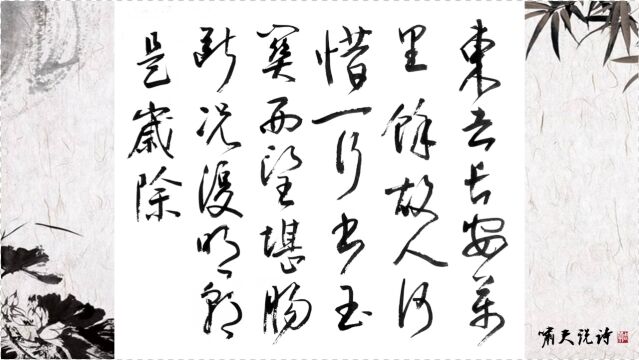 東去長安萬
里餘故人何
惜一行書玉
關西望堪腸
斷況復明朝
是歲除
嘯天说诗